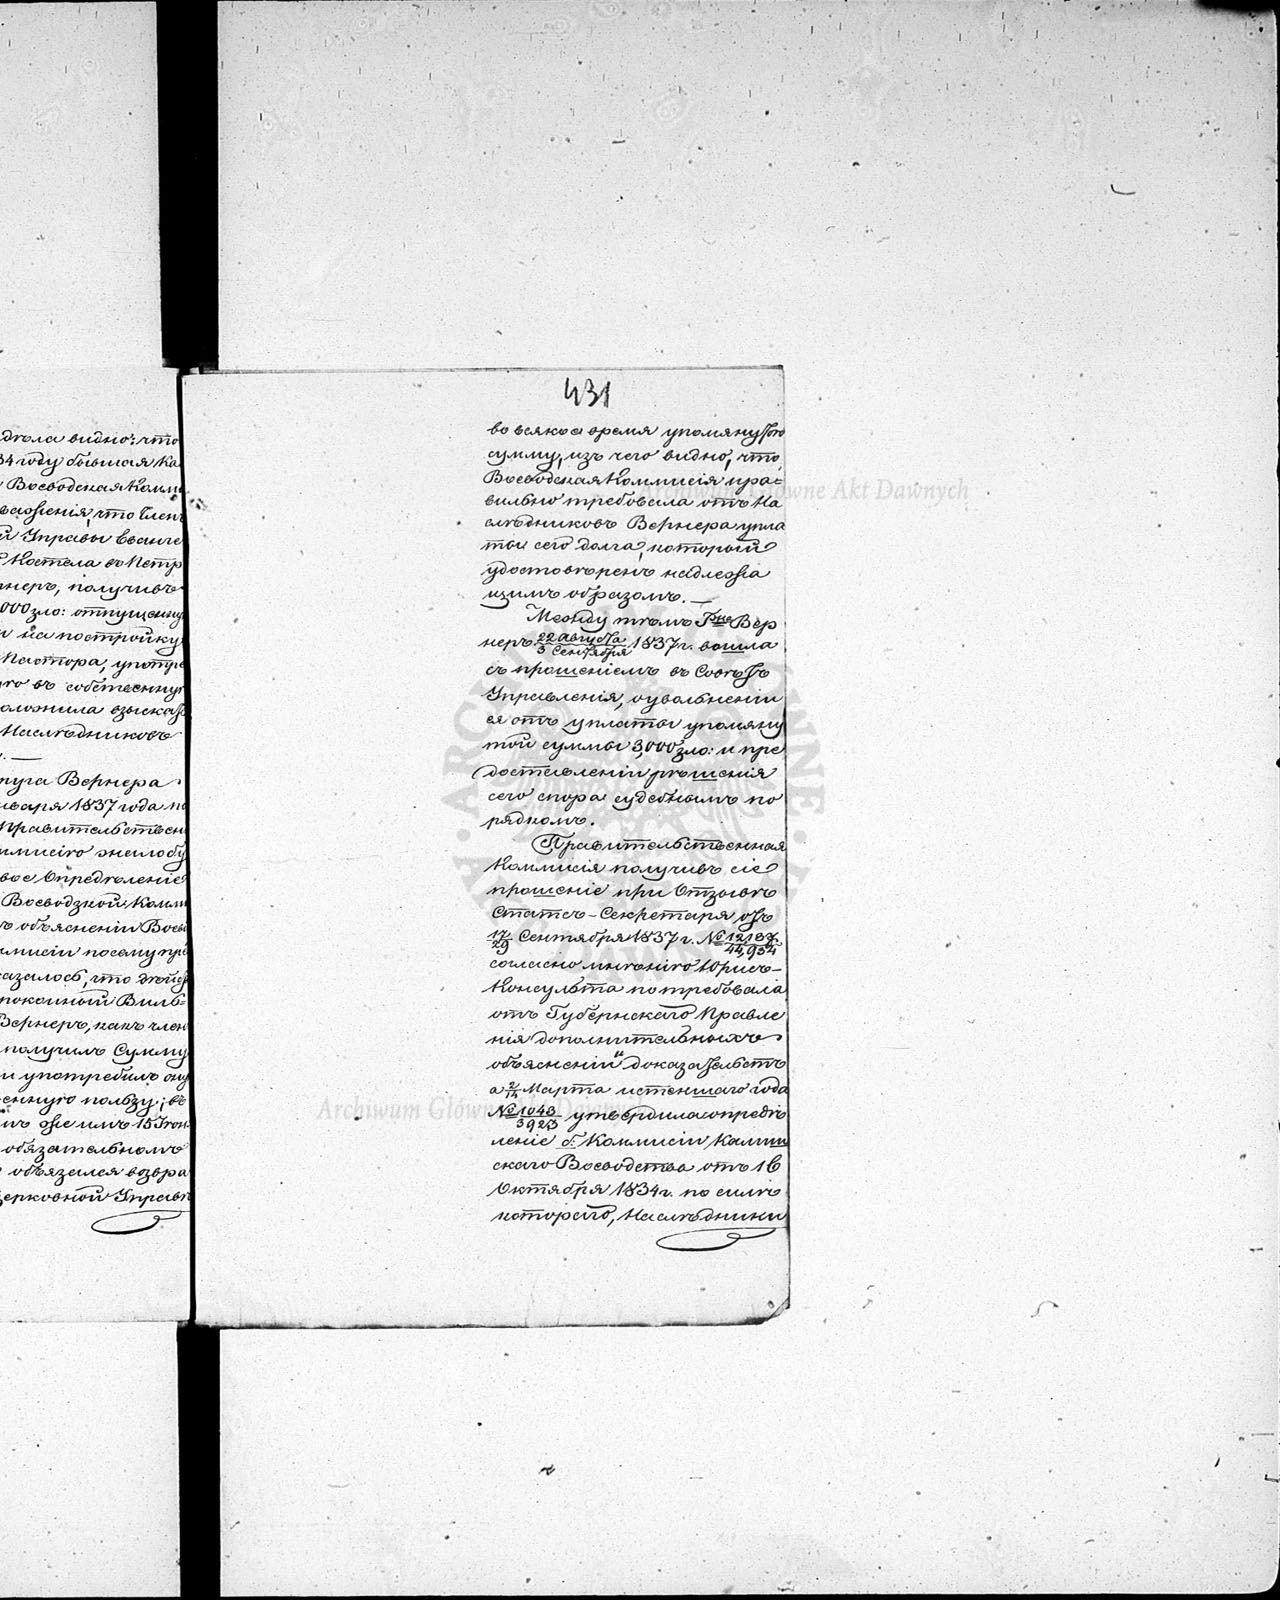 дѣла видно: что
34 году бывшая Ка
Воеводская Комми
что Член
й Управы Еванге
Костела въ Петр
рнеръ, получивъ
000 зло: отпущенну
и на постройку
Пастора, употре
его въ собственную
оложила взыскать
Наслѣдниковъ
пруга Вернера
нваря 1837 года на
Правительствен
ммисію жалобу
вое Опредѣленіе
Воеводской Комми
ъ объясненіи Воево
ммисіи посему пре
казалось, что
покойный Виль-
Вернеръ, какъ член
получилъ Сумму
и употребилъ ону
венную пользу; въ
мъ же имъ 15 Іюн
обязательномъ
обязался возвра
Церковной Управѣ
431
во всякое время упомянутую
сумму, изъ чего видно, что
Воеводская Коммисія пра-
вильно требовала отъ На
слѣдниковъ Вернера упла
ты сего долга, который
удостовѣренъ надлежа
щимъ образомъ. —
Между тѣмъ Гжа Вер
неръ 22 Августа / 3 Сентября 1837 г. вошла
съ прошеніемъ въ Совѣтъ
Управленія, о увольненіи
ея отъ уплаты упомяну
той суммы 3,000 зло: и пре
доставленіи рѣшенія
сего спора судебнымъ по
рядкомъ.
Правительственная
Коммисія получивъ сіе
прошеніе при Отзывѣ
Статсъ-Секретаря отъ
17/29 Сентября 1837 г. № 12187/44,954
согласно мнѣнію Юрисъ-
Консульта потребовала
отъ Губернскаго Правле
нія дополнительныхъ
объясненій и доказательствъ
а 2/14 Марта истекшаго года
№ 1043/3923 утвердила опредѣ
леніе б. Коммисіи Калиш
скаго Воеводства отъ 16
Октября 1834 г. по силѣ
котораго, Наслѣдники
Archiwum Główne Akt Dawnych
Archiwum Główne Akt Dawnych